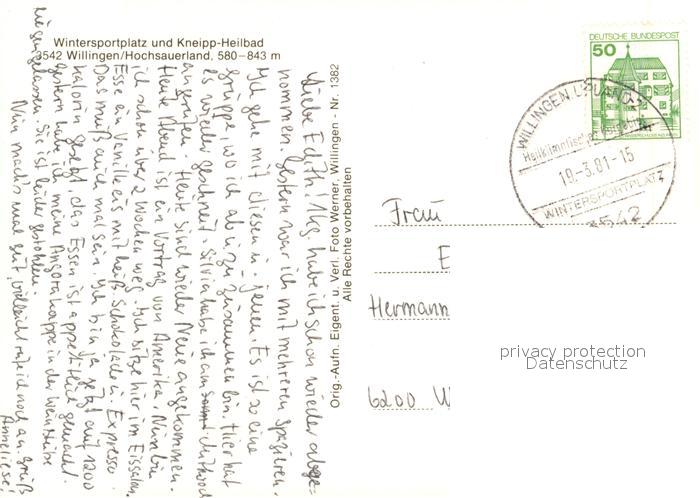 Wintersportplatz und Kneipp-Heilbad
3542 Willingen/Hochsauerland, 580–843 m
Liebe Edith! 1 Kg habe ich schon wieder abge=
nommen. Gestern war ich mit mehreren spazieren.
Ich gehe mit diesen u. jenen. Es ist so eine
Gruppe, wo ich ab u. zu zusammen bin. Hier hat
es wieder geschneit. Silvia habe ich am Mittwoch
angerufen. Heute sind wieder Neue angekommen.
Heute Abend ist ein Vortrag von Amerika. Nun bin
ich schon über 2 Wochen weg. Ich sitze hier im Eissalon.
Esse ein Vanilleeis mit heiß Schokolade u. Expresso.
Das muß auch mal sein. Ich bin ja jetzt auf 1200
Kalorien gesetzt, das Essen ist appetitlich gemacht.
Gestern habe ich meine Angorakappe in der Weinstube
liegengelassen. Sie ist leider gestohlen.
Nun machs mal gut, vielleicht rufe ich noch an. Gruß
Anneliese!
Orig.-Aufn. Eigent. u. Verl. Foto Werner, Willingen - Nr. 1382
Alle Rechte vorbehalten
DEUTSCHE BUNDESPOST
50
WILLINGEN (UPLAND)
Heilklimatischer Kurort
19.-3.81-15
WINTERSPORTPLATZ
3542
Frau
E
Hermann
6200 W
privacy protection
Datenschutz